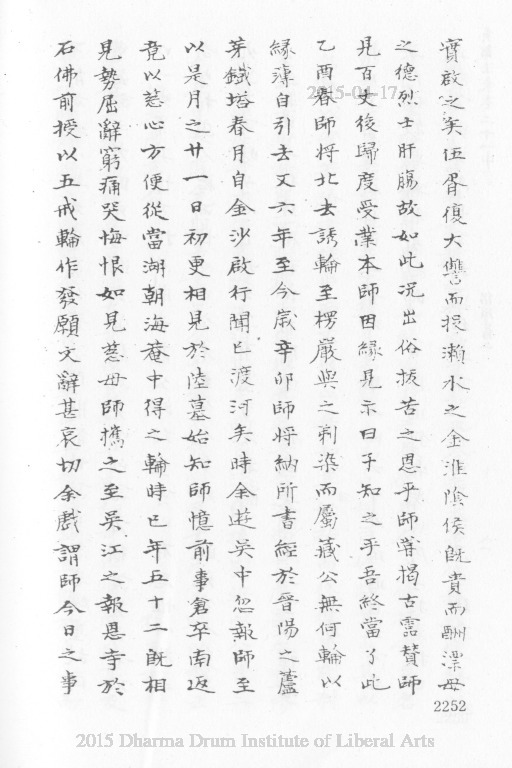 實啟之矣伍胥復大讐而投瀨水之金淮陰侯既貴而酬漂母
之德烈士肝膓故如此况出俗拔苦之恩乎師嘗揭古靈贊師
見百丈後歸度受業本師因緣見示曰子知之乎吾終當了此
乙酉春師將北去誘輪至楞嚴與之剃染而屬藏公無何輪以
緣薄自引去又六年至今歲辛卯師將納所書經於晉陽之蘆
芽鐵塔春月自金沙啟行聞已渡河矣時余遊吳中忽報師至
以是月之廿一日初更相見於陸墓始知師憶前事倉卒南返
竟以慈心方便從當湖朝海菴中得之輪時已年五十二既相
見勢屈辭窮痛哭悔恨如見慈母師携之至吳江之報恩寺於
石佛前授以五戒輪作發願文辭甚哀切余戲謂師今日之事
2252
2015-04-17
2015 Dharma Drum Institute of Liberal Arts